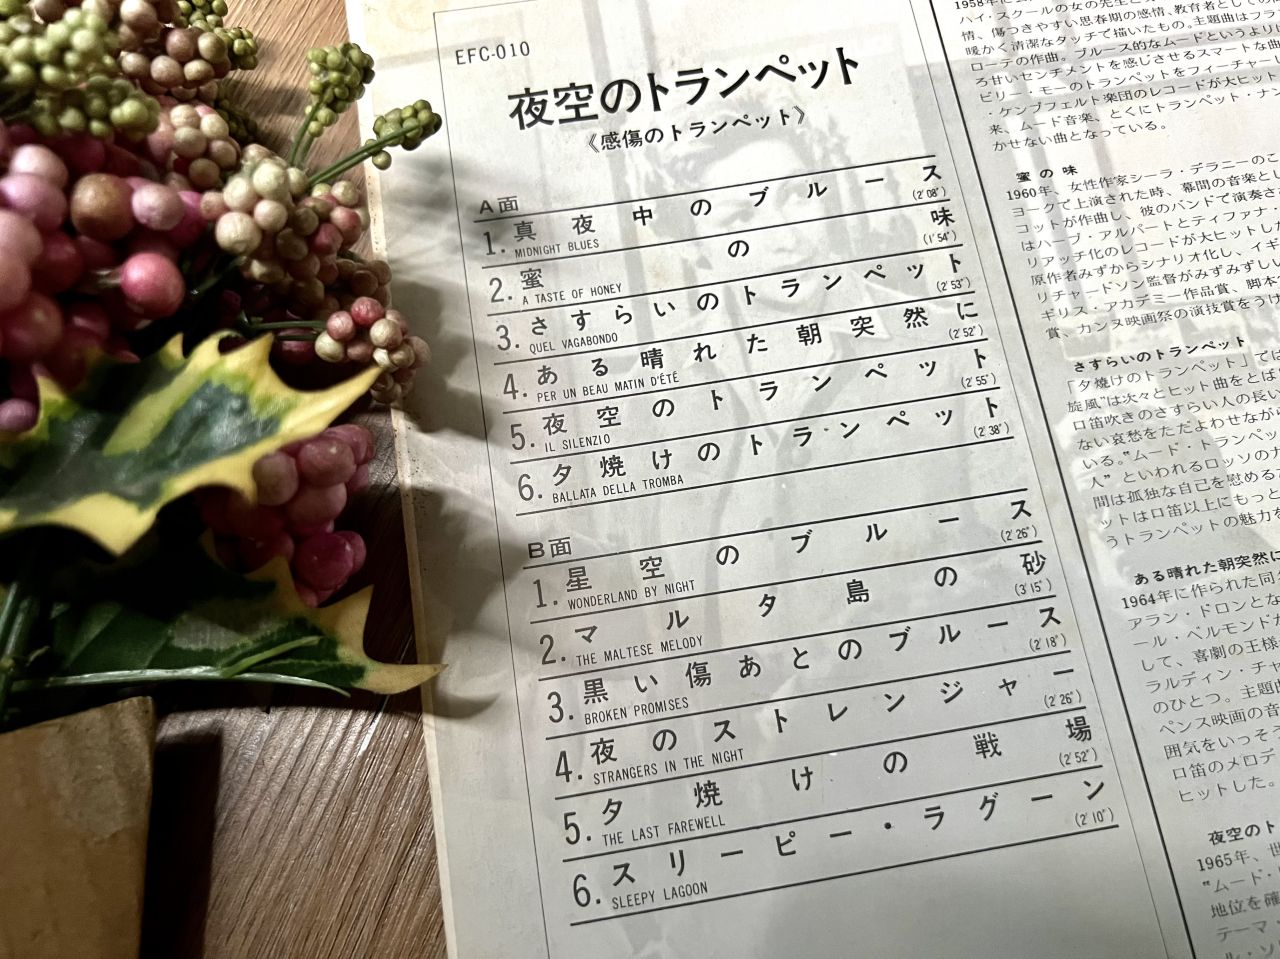 EFC-010
夜空のトランペット
《感傷のトランペット》
A面
1. 真夜中のブルース
MIDNIGHT BLUES (2′08″)
2. 蜜の味
A TASTE OF HONEY (1′54″)
3. さすらいのトランペット
QUEL VAGABONDO (2′53″)
4. ある晴れた朝突然に
PER UN BEAU MATIN D'ÉTÉ (2′52″)
5. 夜空のトランペット
IL SILENZIO (2′55″)
6. 夕焼けのトランペット
BALLATA DELLA TROMBA (2′38″)
B面
1. 星空のブルース
WONDERLAND BY NIGHT (2′26″)
2. マルタ島の砂
THE MALTESE MELODY (3′15″)
3. 黒い傷あとのブルース
BROKEN PROMISES (2′18″)
4. 夜のストレンジャー
STRANGERS IN THE NIGHT (2′26″)
5. 夕焼けの戦場
THE LAST FAREWELL (2′52″)
6. スリーピー・ラグーン
SLEEPY LAGOON (2′10″)
ハイ・スクールの女の先生と
情、傷つきやすい思春期の感情、教育者としての
暖かく清潔なタッチで描いたもの。主題曲はフラ
ローテの作曲。ブルース的なムードというより
ろ甘いセンチメントを感じさせるスマートな曲
ビリー・モーのトランペットをフィーチャーし
・ケンプフェルト楽団のレコードが大ヒット
来、ムード音楽、とくにトランペット・ナン
かせない曲となっている。
蜜の味
1960年、女性作家シーラ・デラニーのこ
ヨークで上演された時、幕間の音楽とし
コットが作曲し、彼のバンドで演奏さ
はハーブ・アルパートとティファナ・
リアッチ化のレコードが大ヒットした
原作者みずからシナリオ化し、イギ
リチャードソン監督がみずみずしい
ギリス・アカデミー作品賞、脚本
賞、カンヌ映画祭の演技賞をうけ
さすらいのトランペット
「夕焼けのトランペット」では
旋風"は次々とヒット曲をとば
口笛吹きのさすらい人の長い
ない哀愁をただよわせなが
いる。"ムード・トランペッ
人" といわれるロッソのナ
間は孤独な自己を慰める
ットは口笛以上にもっと
うトランペットの魅力を
ある晴れた朝突然に
1964年に作られた同
アラン・ドロンとな
ール・ベルモンドが
して、喜劇の王様
ラルディン・チャ
のひとつ。主題曲
ペンス映画の音
囲気をいっそう
口笛のメロデ
ヒットした。
夜空のト
1965年、世
"ムード・
地位を確
テーマ・
ル・ソ